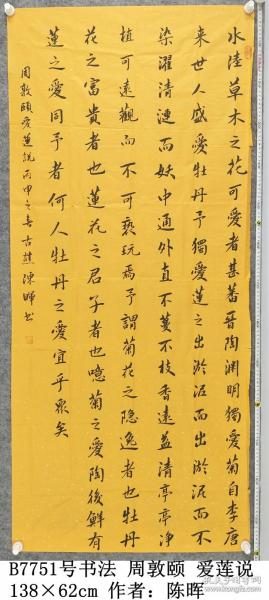 水陸草木之花可愛者甚蕃晉陶渊明獨愛菊自李唐
来世人盛愛牡丹予獨愛蓮之出淤泥而出淤泥而不
染濯清漣而妖中通外直不蔓不枝香遠益清亭亭净
植可遠觀而不可褻玩焉予謂菊花之隐逸者也牡丹
花之富貴者也蓮花之君子者也噫菊之愛陶後鮮有
蓮之愛同予者何人牡丹之愛宜乎眾矣
周敦頤愛蓮説丙申之春古陳暉书
B7751号书法 周敦颐 爱莲说
138×62cm 作者：陈晖